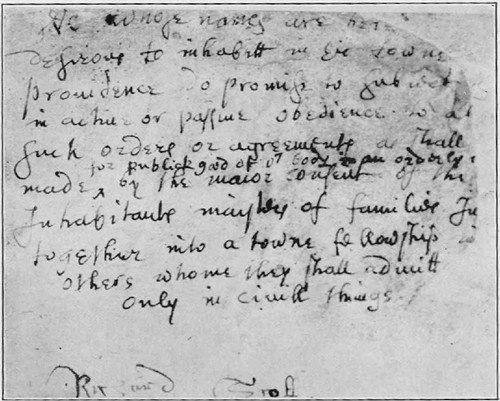 We whose names are here
desirous to inhabitt in ye towne
providence do promise to subiect
in active or passive obedience to al
such orders or agreements as shall
for publick good of or body in an orderly
made by the maior consent of the
Inhabitants maisters of families In
together into a towne fellowship
others whome they shall admitt
only in civill things
Richard Scott